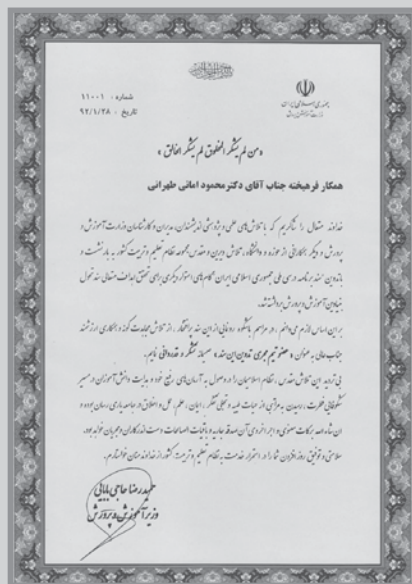 جمهوری اسلامی ایران
وزارت آموزش و پرورش
شماره : ۱۱۰۰۱
تاریخ : ۹۲/۱/۲۸
«من لم یشکر المخلوق لم یشکر الخالق»
همکار فرهیخته جناب آقای دکتر محمود امانی طهرانی
خداوند متعال را شاکریم که با تلاش‌های علمی و پژوهشی اندیشمندان، مدیران و کارشناسان وزارت آموزش و
پرورش و دیگر همکارانی از حوزه و دانشگاه، تلاش دیرین و مقدس مجموعه نظام تعلیم و تربیت کشور به بار نشست و
با تدوین سند برنامه درسی ملی جمهوری اسلامی ایران گام‌های استوار دیگری برای تحقق اهداف متعالی سند تحول
بنیادین آموزش و پرورش برداشته شد.
بر این اساس لازم می‌دانم، در مراسم باشکوه رونمایی از این سند پرافتخار، از تلاش مجاهدت گونه و همکاری ارزشمند
جناب عالی به عنوان «عضو تیم مجری تدوین این سند» صمیمانه تشکر و قدردانی نمایم.
بی تردید این تلاش مقدس، نظام اسلامیمان را در وصول به آرمان‌های رفیع خود و هدایت دانش‌آموزان در مسیر
شکوفایی فطرت، رسیدن به مراتبی از حیات طیبه و تجلی تفکر، ایمان، علم، عمل و اخلاق در جامعه یاری رسان بوده و
ان شاءالله برکات معنوی و اجر اخروی آن صدقه جاریه و باقیات الصالحات دست اندرکاران و مجریان خواهد بود.
سلامتی و توفیق روزافزون شما را در استمرار خدمت به نظام تعلیم و تربیت کشور از خداوند منان خواستارم.
حمیدرضا حاجی بابایی
وزیر آموزش و پرورش